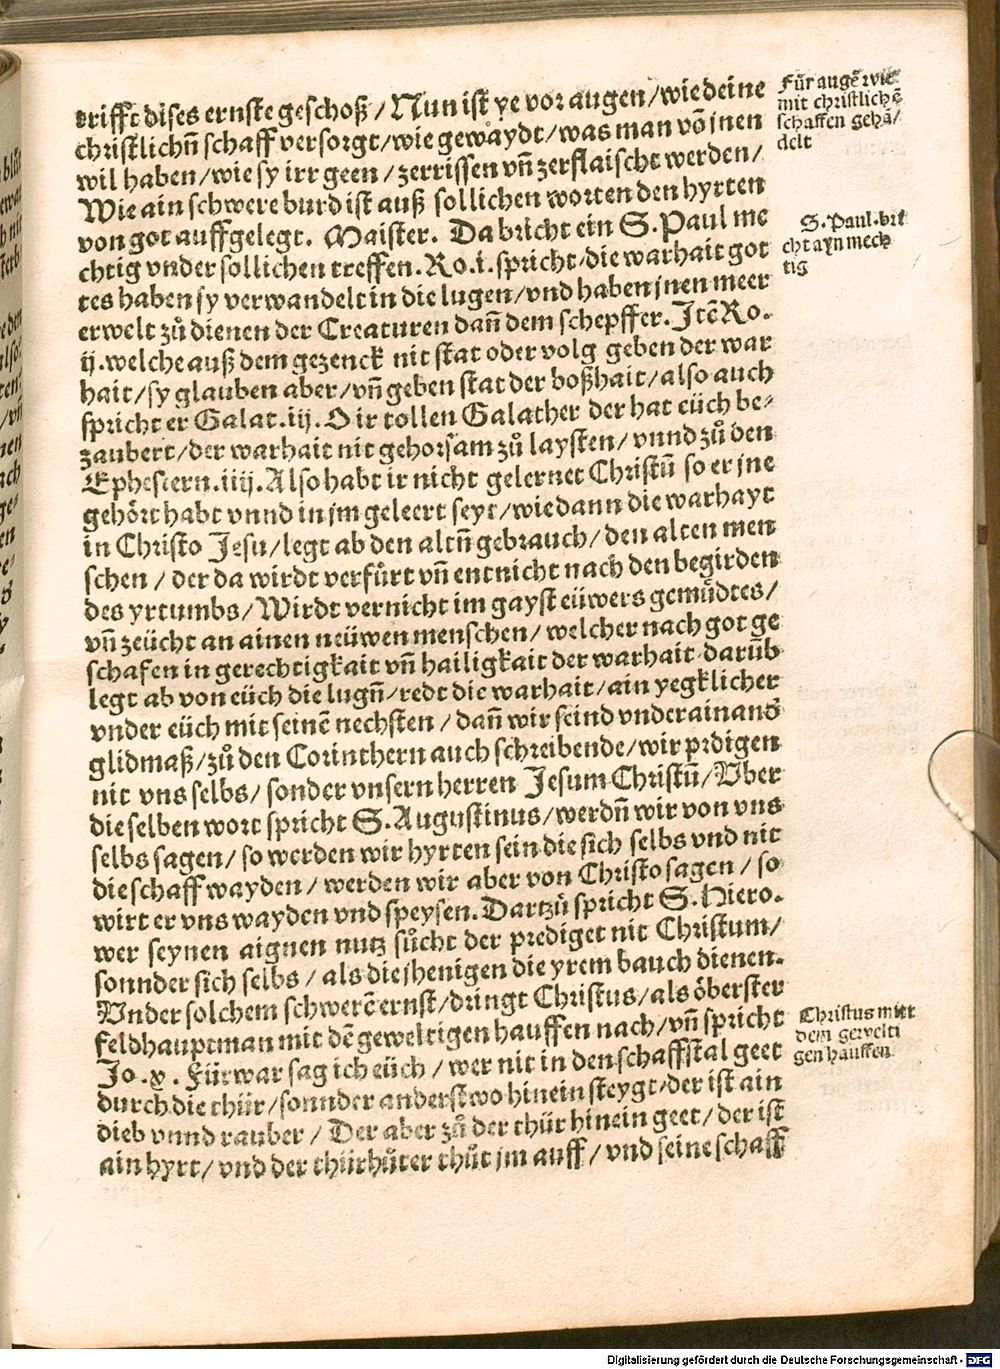 trifft dises ernste geschoß / Nun ist ye vor augen / wie deine
christlichñ schaff versorgt / wie gewaydt / was man võ jnen
wil haben / wie sy irr geen / zerrissen vñ zerflaischt werden /
Wie ain schwere burd ist auß sollichen worten den hyrten
von got auffgelegt. Maister. Da bricht ein S. Paul me
chtig vnder sollichen treffen. Ro. i. spricht / die warhait got
tes haben sy verwandelt in die lugen / vnd haben jnen meer
erwelt zů dienen der Creaturen dañ dem schepffer. Jtẽ Ro.
ij. welche auß dem gezenck nit stat oder volg geben der war
hait / sy glauben aber / vñ geben stat der boßhait / also auch
spricht er Galat. iij. O ir tollen Galather der hat eüch be-
zaubert / der warhait nit gehorsam zů laysten / vnnd zů den
Ephestern. iiij. Also habt ir nicht gelernet Christũ so er jne
gehört habt vnnd in jm geleert seyt / wie dann die warhayt
in Christo Jesu / legt ab den altñ gebrauch / den alten men
schen / der da wirdt verfürt vñ entnicht nach den begirden
des yrtumbs / Wirdt vernicht im gayst eüwers gemůdtes /
vñ zeücht an ainen neüwen menschen / welcher nach got ge
schafen in gerechtigkait vñ hailigkait der warhait darũb
legt ab von eüch die lugñ / redt die warhait / ain yegklicher
vnder eüch mit seinẽ nechsten / dañ wir seind vnderainand
glidmaß / zů den Corinthern auch schreibende / wir pdigen
nit vns selbs / sonder vnsern herren Jesum Christũ / Vber
die selben wort spricht S. Augustinus / werdñ wir von vns
selbs sagen / so werden wir hyrten sein die sich selbs vnd nit
die schaff wayden / werden wir aber von Christo sagen / so
wirt er vns wayden vnd speysen. Dartzů spricht S. Hiero.
wer seynen aignen nutz sůcht der prediget nit Christum /
sonnder sich selbs / als die jhenigen die yrem bauch dienen.
Vnder solchem schwerẽ ernst / dringt Christus / als öberster
feldhauptman mit dẽ geweltigen hauffen nach / vñ spricht
Jo. x. Fürwar sag ich eüch / wer nit in den schaffstal geet
durch die thür / sonnder anderstwo hinein steygt / der ist ain
dieb vnnd rauber / Der aber zů der thür hinein geet / der ist
ain hyrt / vnd der thürhůter thůt jm auff / vnd seine schaff
Für augẽ wie
mit christlichẽ
schaffen gehã/
delt
S. Paul. bri
cht ayn mech
tig
Christus mitt
dem gewelti
gen hauffen
Digitalisierung gefördert durch die Deutsche Forschungsgemeinschaft - DFG